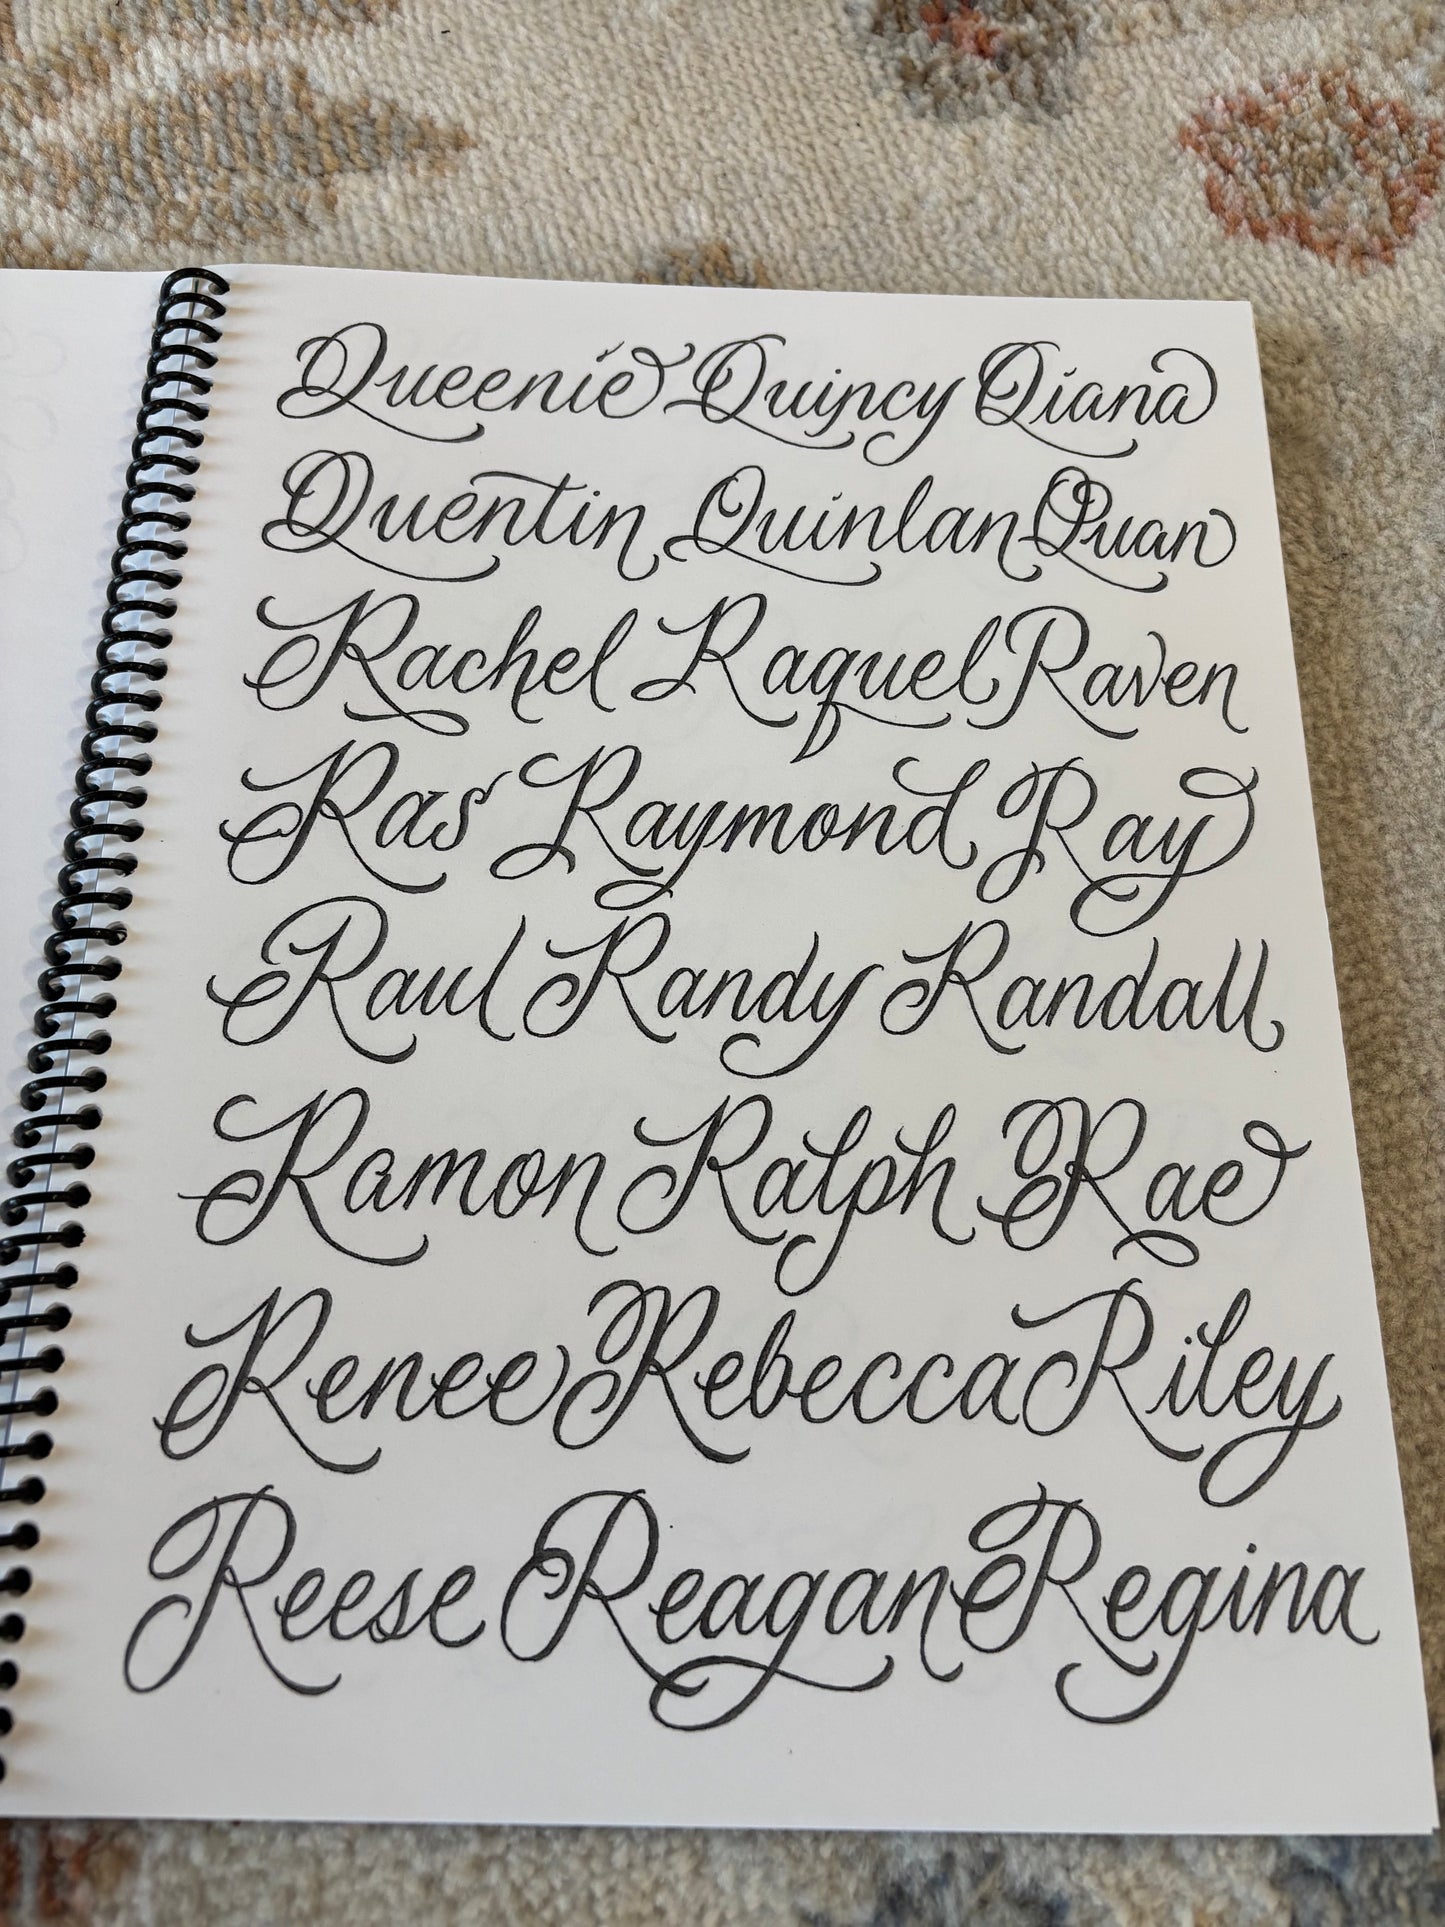 Queenie Quincy Qiana
Quentin Quinlan Quan
Rachel Raquel Raven
Ras Raymond Ray
Raul Randy Randall
Ramon Ralph Rae
Renee Rebecca Riley
Reese Reagan Regina